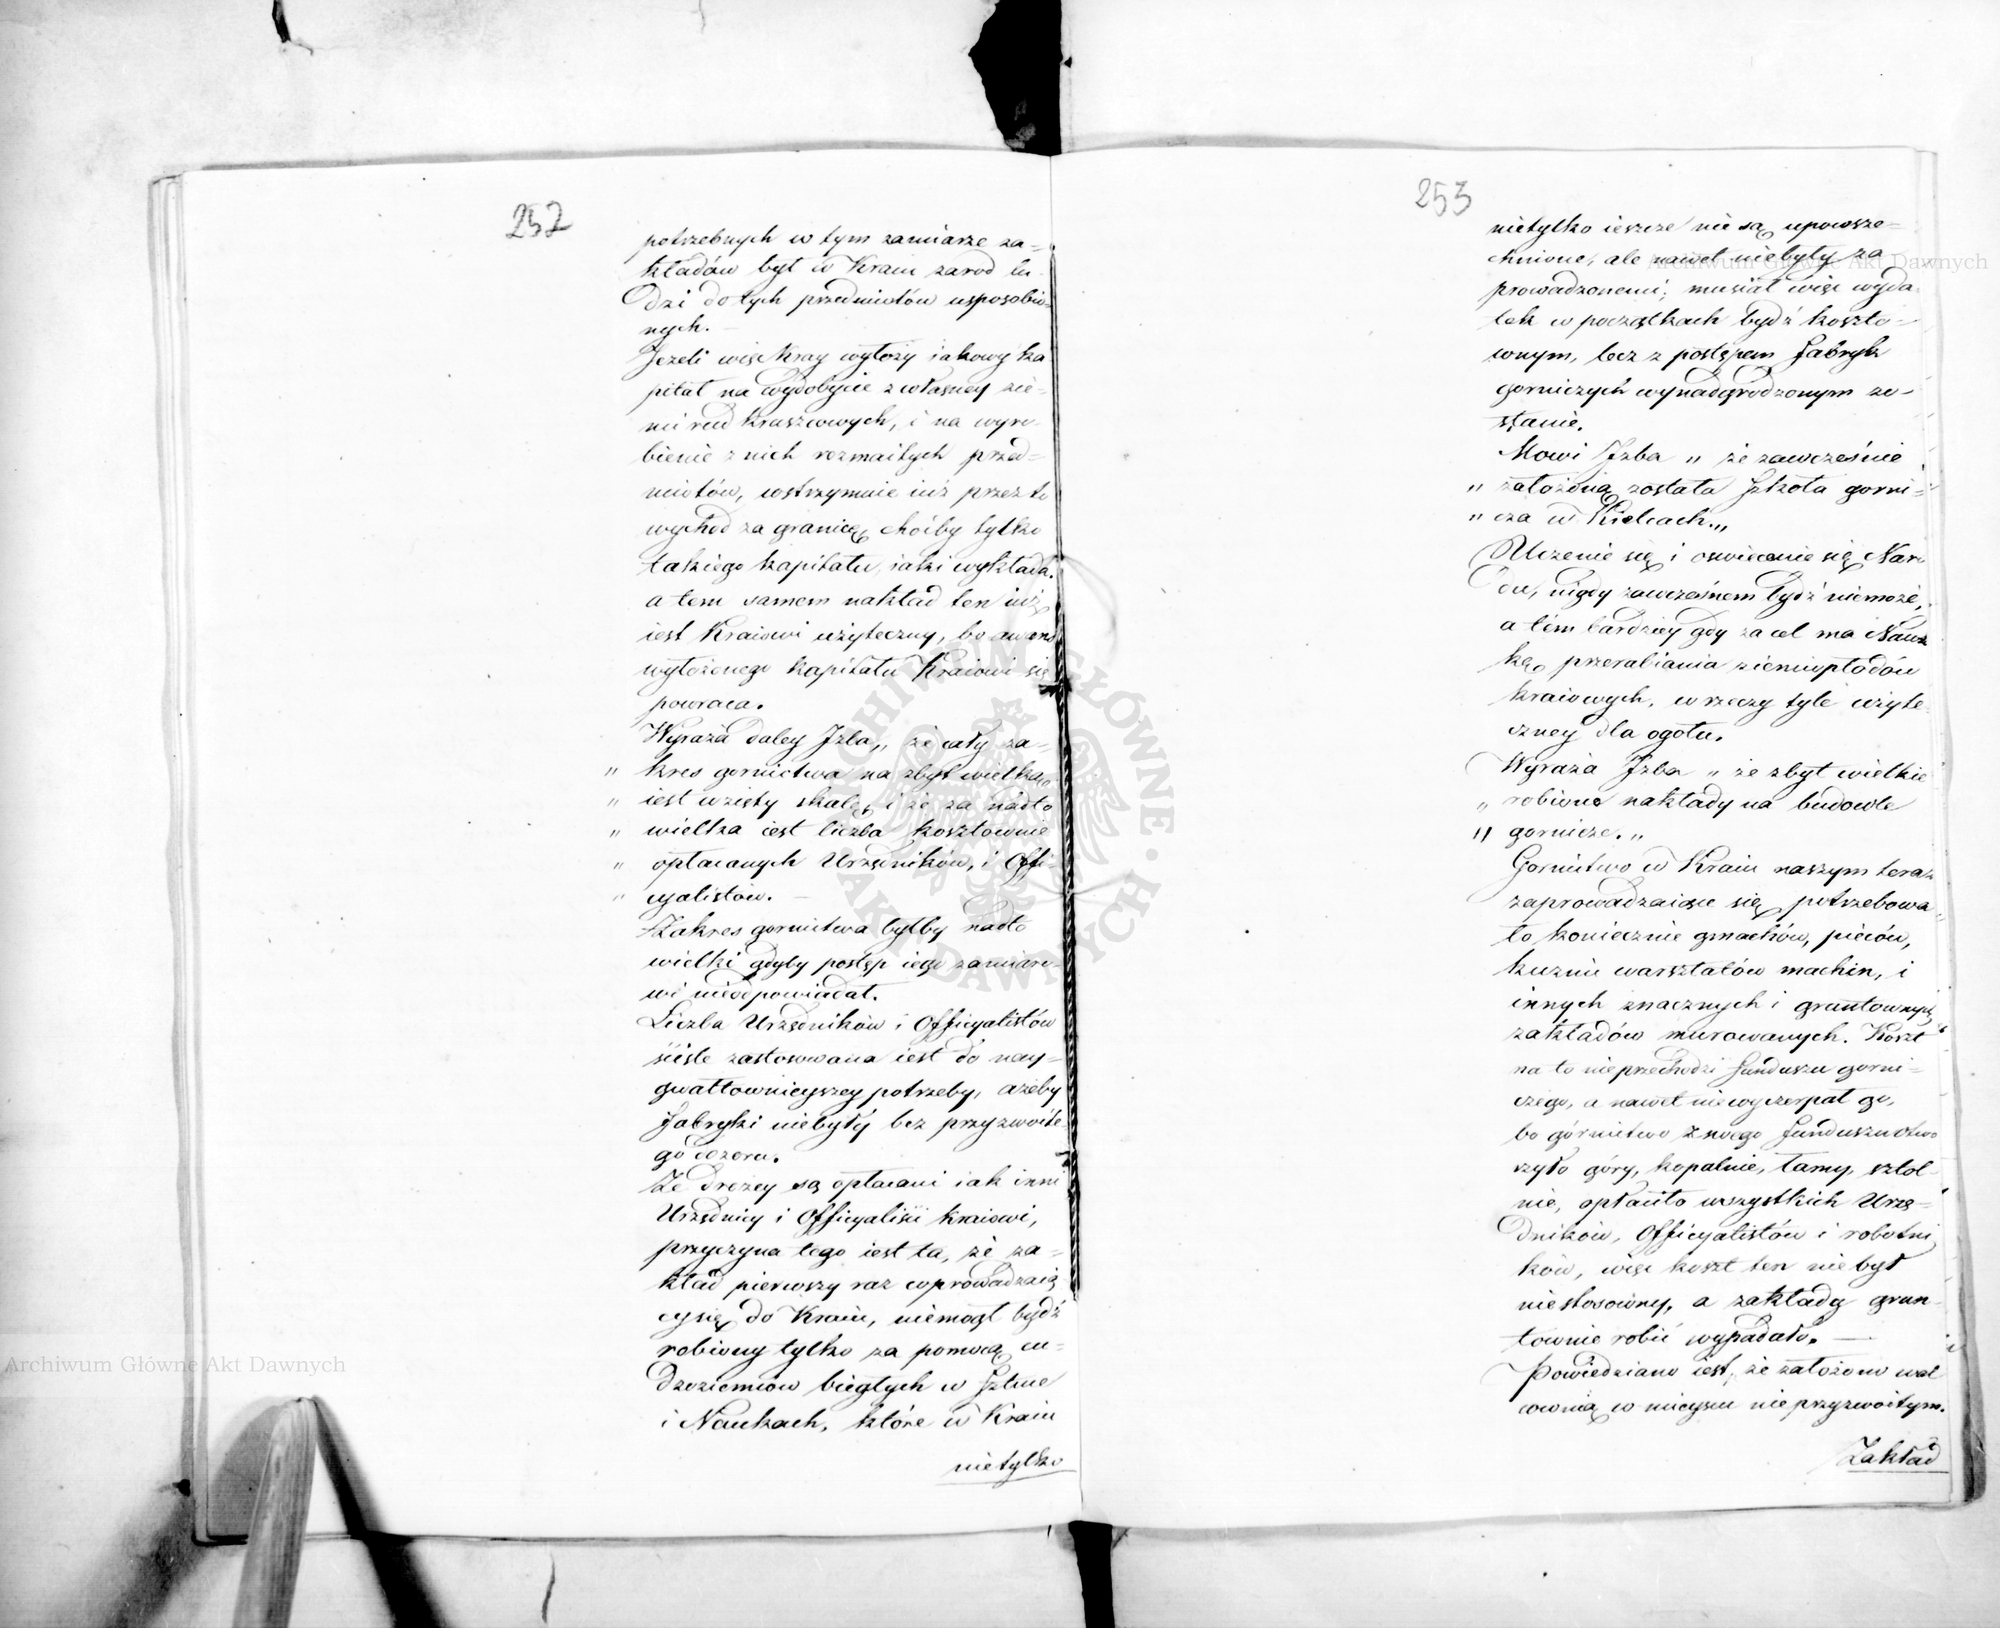 252
potrzebnych w tym zamiarze za=
kładów był w Kraiu zarod lu
dzi do tych przedmiotów usposobio=
nych. —
Jezeli więc Kray wyłoży iakowy ka
pitał na wydobycie z własney zie=
mi rud kruszcowych, i na wyro
bienie z nich rozmaitych przed=
miotów, wstrzymuie iuż przez to
wychod za granicę choiby tylko
takiego kapitału, iaki wykłada.
a tem samem nakład ten iuż
iest Kraiowi użyteczny, bo awans
wyłożonego kapitału Kraiowi się
powraca.
Wyraża daley Izba „ że cały za=
„ kres gornictwa na zbyt wielką
„ iest wzięty skalę, i że za nadto
„ wielka iest liczba kosztownie
„ opłacanych Urzędników, i Offi=
„ cyalistów. —
Zakres gornictwa byłby nadto
wielki gdyby postęp iego zamiaro=
wi nieodpowiadał.
Liczba Urzędników i Officyalistów
ściśle zastosowana iest do nay=
gwałtownieyszey potrzeby, ażeby
Fabryki niebyły bez przyzwoite
go dozoru.
Że drożey są opłacani iak inni
Urzędnicy i Officyaliści kraiowi,
przyczyna tego iest ta, że za=
kład pierwszy raz wprowadzaią
cy się do Kraiu, niemógł bydź
robiony tylko za pomocą cu=
dzoziemców biegłych w Sztuce
i Naukach, które w Kraiu
nietylko
253
nietylko ieszcze nie są upowsze=
chnione, ale nawet niebyły za
prowadzonemi; musiał więc wyda
tek w początkach bydź koszto=
wnym, lecz z postępem Fabryk
gorniczych wynadgrodzonym zo=
stanie.
Mowi Izba „ że zawcześnie
„ założoną została Szkoła gorni=
„ cza w Kielcach.„
Uczenie się i oswiecanie się Naro
du, nigdy zawczesnem bydź niemoże,
a tém bardziey gdy za cel ma Nau
kę przerabiania ziemiopłodów
kraiowych, w rzeczy tyle użyte
czney dla ogołu.
Wyraża Izba „ że zbyt wielkie
„ robione nakłady na budowle
„ gornicze.„
Gornictwo w Kraiu naszym teraz
zaprowadzaiące się potrzebowa
ło koniecznie gmachów, pieców,
kuzni warsztatów machin, i
innych znacznych i gruntownych
zakładów murowanych. Koszt
na to nie przechodzi funduszu gorni=
czego, a nawet niewyczerpał go,
bo górnictwo z swego funduszu otwo
rzyło góry, kopalnie, tamy, sztol=
nie, opłaciło wszystkich Urzę=
dników, Officyalistów i robotni
ków, więc koszt ten nie był
niestosowny, a zakłady grun
townie robić wypadało. —
Powiedziano iest, że założono wal
cownią w mieyscu nie przyzwoitym.
Zakład
Archiwum Główne Akt Dawnych
Archiwum Główne Akt Dawnych
ARCHIWUM GŁÓWNE AKT DAWNYCH